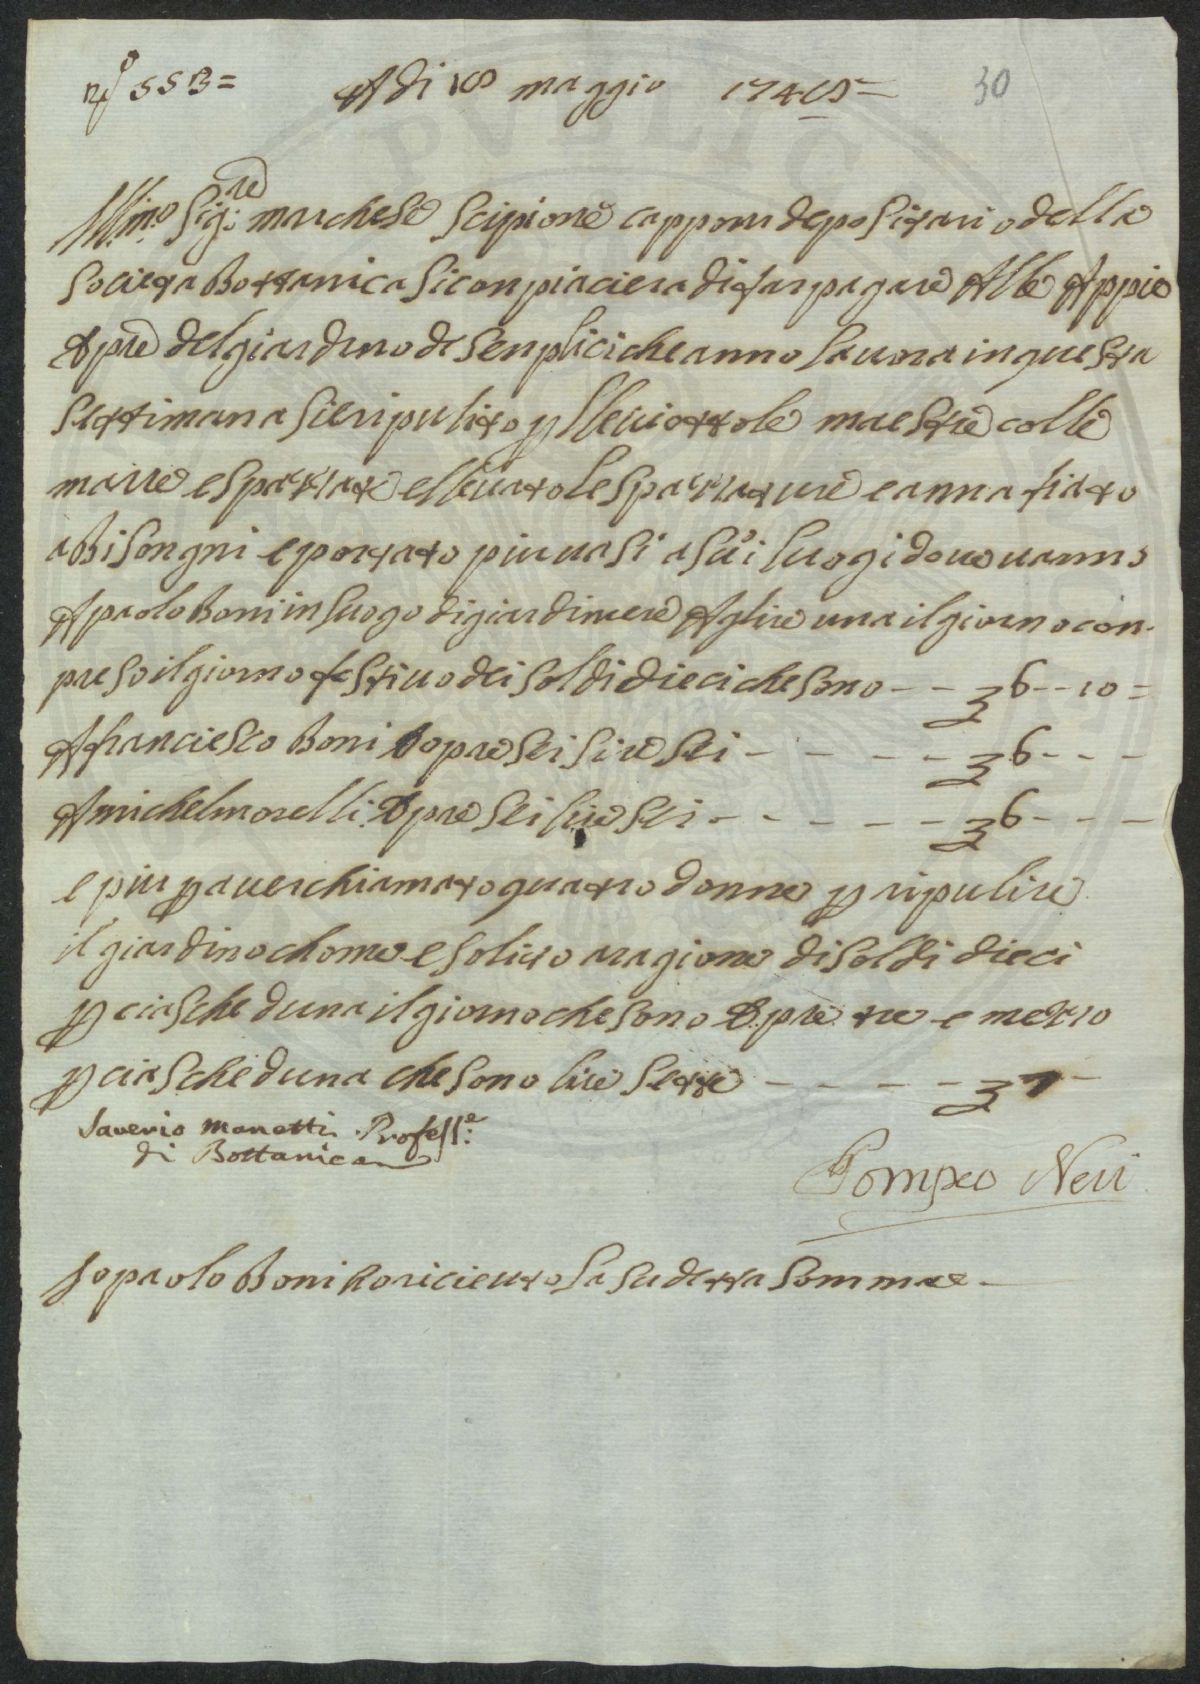 n.º 553=
Adi 18 maggio 1748=
30
Ill:mo Sig:re marchese Scipione capponi depositario della
Società Bottanica si conpiacierà di far pagare Alle Appie
Opre del giardino de Senplici che anno lavora in questa
settimana si e ripulito p lle viottole maestre colle
marre e spazzate e llevato le spazzature e annafiato
a Bisongni e portato piu vasi a sui luogi dove vanno
A paolo Boni in luogo di giardiniere A lire una il giorno con-
preso il giorno festivo dei soldi dieci che sono - - ʒ 6 - - 10 =
A franciesco Boni Bopre sei lire sei - - - - ʒ 6 - - -
A michel morelli Opre sei lire sei - - - - - ʒ 6 - - -
e piu p aver chiamato quatro donne p ripulire
il giardino chome e solito a ragione di soldi dieci
p ciascheduna il giorno che sono Opre tre e mezzo
p ciascheduna che sono lire sette - - - - - ʒ 7 -
Saverio Manetti Profess:e
di Bottanica
Pompeo Neri
Io paolo Boni ho riciento la sudetta somma e -